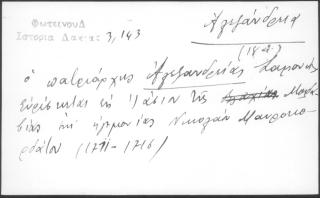 Φωτεινού Δ
Ἱστορία Δακίας 3, 143
Ἀλεξάνδρεια
(18 α.)
ὁ πατριάρχης Ἀλεξανδρείας Σαμουὴλ
εὑρίσκεται ἐν Ἰασίῳ τῆς Μολδα
βίας ἐπὶ ἡγεμονίας Νικολάου Μαυροκο
ρδάτου (1711-1716)